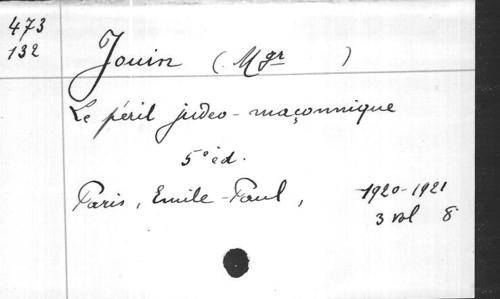 473
132
Jouin (Mgr )
Le péril judeo-maçonnique
5° éd.
Paris, Emile-Paul, 1920-1921
3 vol 8°